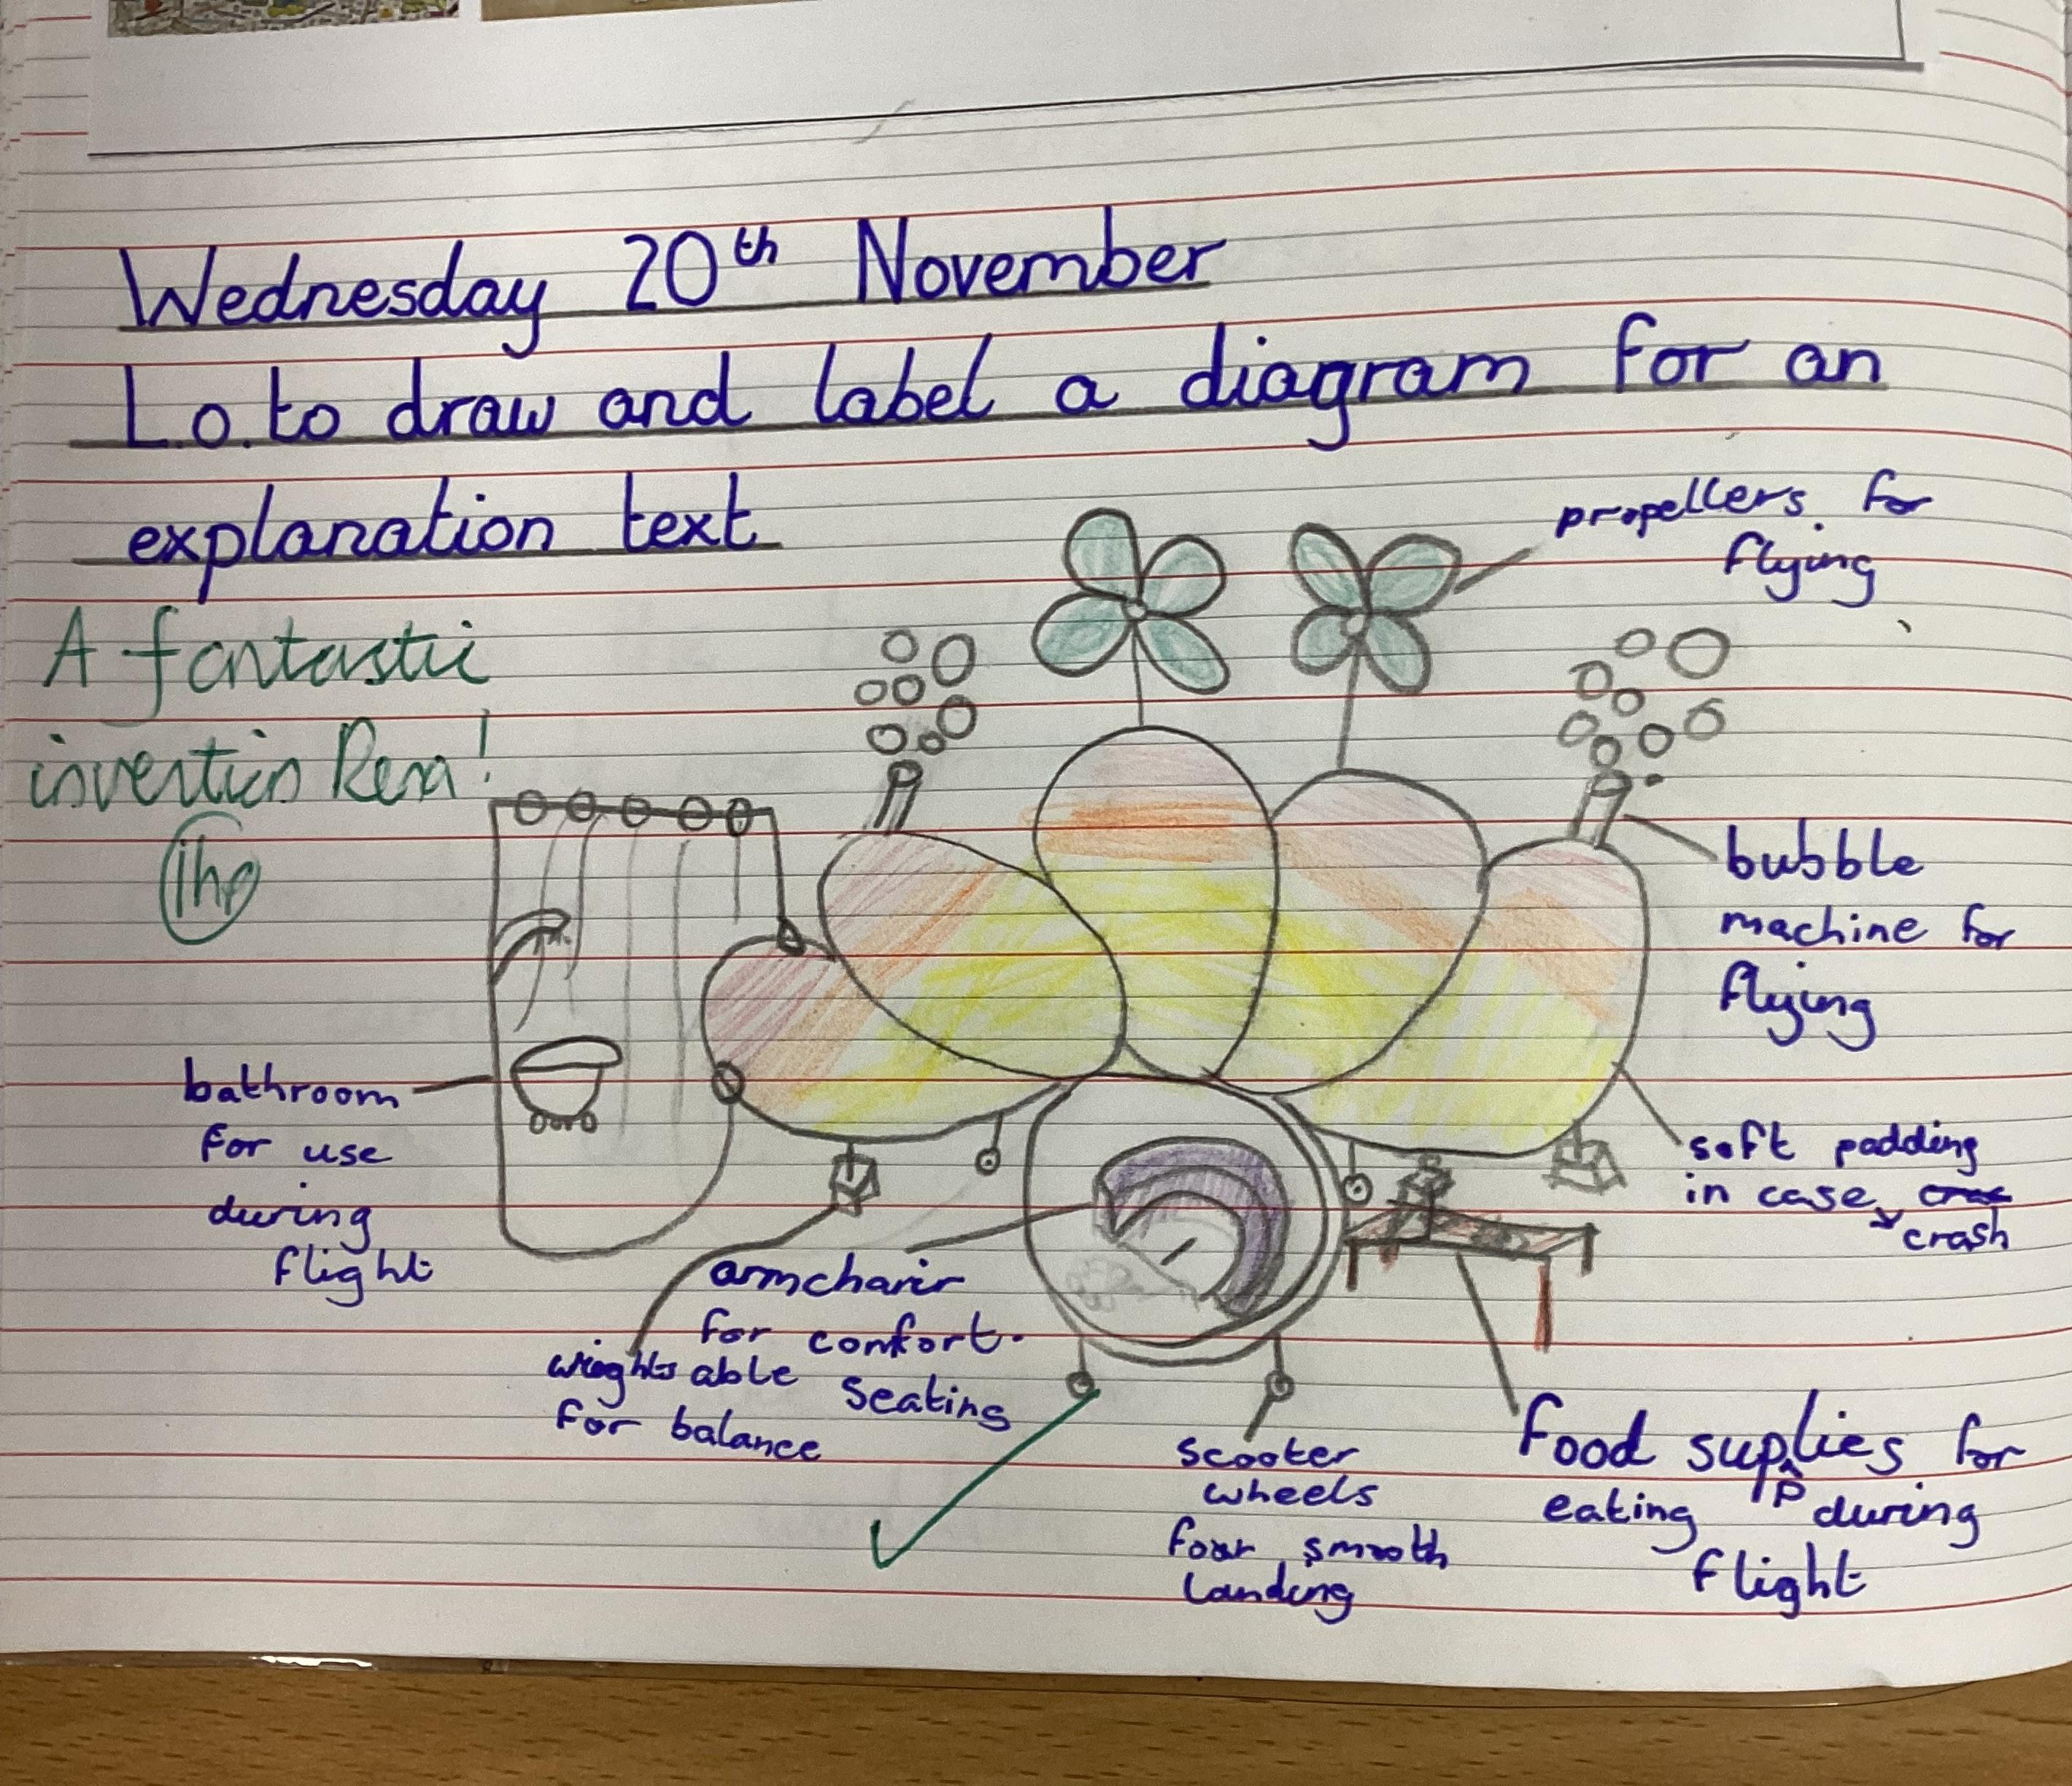 Wednesday 20th November
L.o. to draw and label a diagram for an
explanation text
A fantastic
invention Rena!
1hp
propellers for
flying
bubble
machine for
flying
soft padding
in case
crash
bathroom
for use
during
flight
armchair
for comfort
able
seating
weights
for balance
scooter
wheels
for smooth
landing
food supplies for
eating during
flight